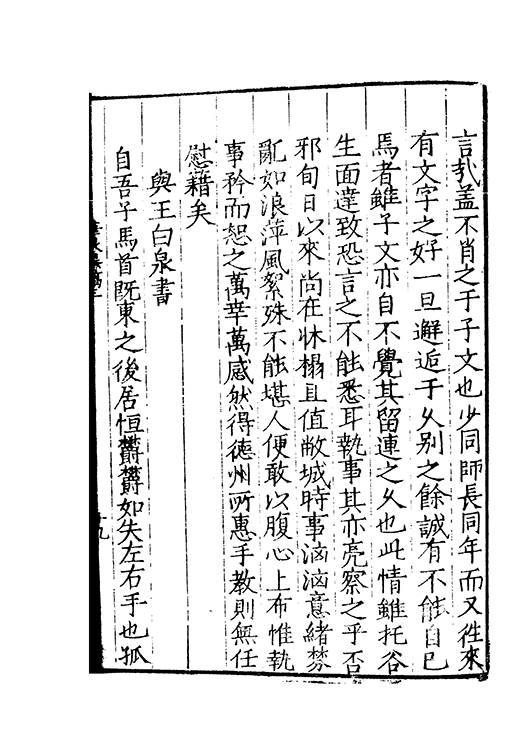 言哉盖不肖之于子文也少同師長同年而又徃來
有文字之好一旦邂逅于乆别之餘誠有不能自已
焉者雖子文亦自不覺其留連之乆也此情雖托谷
生面達致恐言之不能悉耳執事其亦亮察之乎否
邪旬日以來尚在牀榻且值敝城時事洶洶意緒棼
亂如浪萍風絮殊不能堪人便敢以腹心上布惟執
事矜而恕之萬幸萬感然得德州所惠手教則無任
慰藉矣
與王白泉書
自吾子馬首既東之後居恒欝欝如失左右手也孤